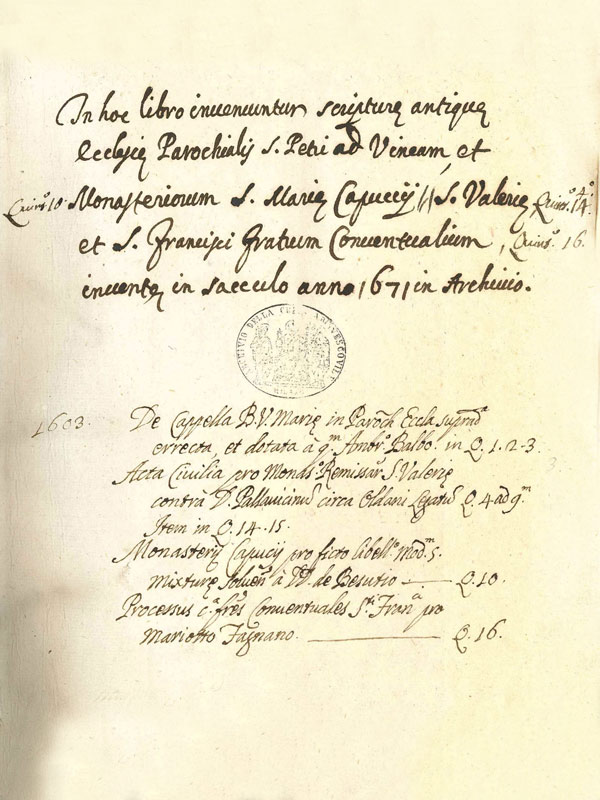 In hoc libro inuenuntur scripturę antiquę
Ecclesię Parochialis S. Petri ad Vineam, et
Quint.º 10 Monasteriorum S. Marię Capucij // S. Valerię Quint.º 4º 14º
et S. Francisci fratum Conuentualium, Quint.º 16.
inuentę in saeculo anno 1671 in Archiuio.
ARCHIVIO DELLA ARCIVESCOVILE
1603. De Cappella B.V. Marię in Paroch Eccla suprad.ª
errecta, et dotata à q.m Ambr.º Balbo. in Q. 1. 2-3.
Acta Ciuilia pro Monas.º Remissar S. Valerię
contrà D. Pallauicinũ circa Oldani Legatũ Q. 4 ad 9.m
Item in Q. 14. 15.
Monasterij Capucij pro ficto libell.º mod. 5.
mixturę soluen.º à DD. de Besutio — Q. 10.
Processus c.ª fres Conuentuales S.ti Fran.ci pro
Mariotto Fagnano. — Q. 16.